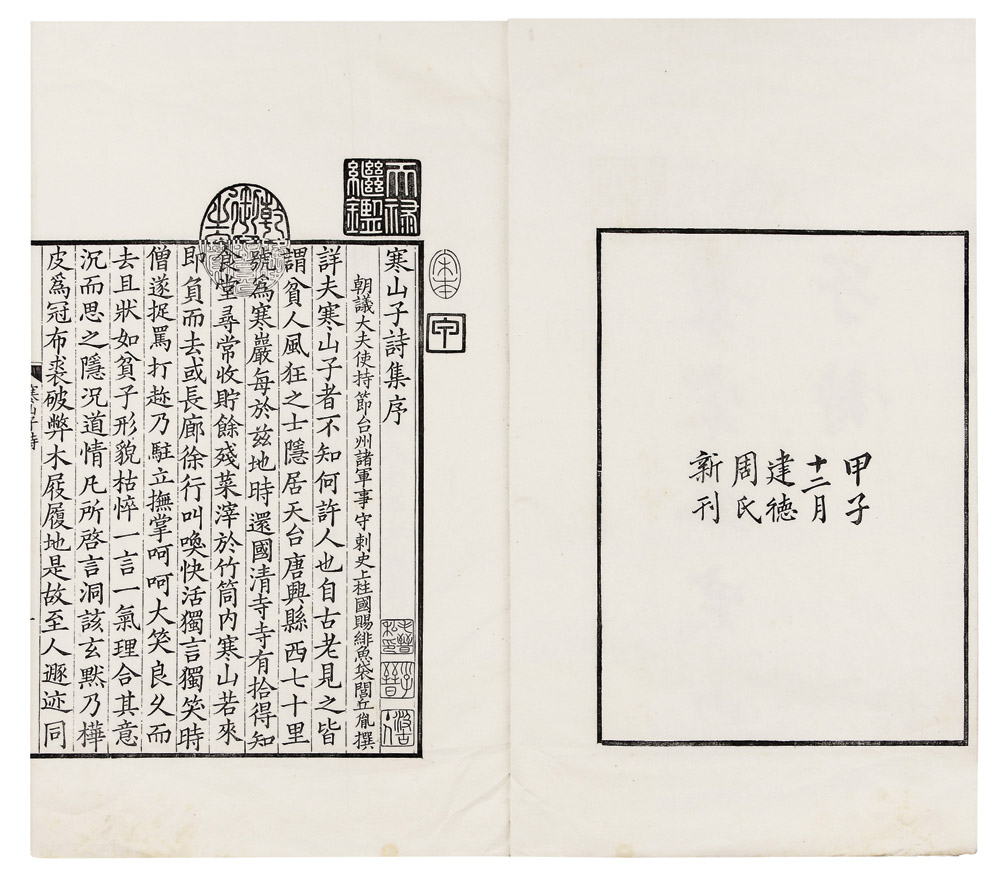 甲子
十二月
建德
周氏
新刊
天禄
繼鑑
宋本
甲
寒山子詩集序
子晉
朝議大夫使持節台州諸軍事守刺史上柱國賜緋魚袋閭丘胤撰
詳夫寒山子者不知何許人也自古老見之皆
謂貧人風狂之士隱居天台唐興縣西七十里
號爲寒巖每於兹地時還國清寺寺有拾得知
食堂尋常收貯餘殘菜滓於竹筒内寒山若來
即負而去或長廊徐行叫喚快活獨言獨笑時
僧遂捉罵打趂乃駐立撫掌呵呵大笑良久而
去且狀如貧子形貌枯悴一言一氣理合其意
沉而思之隱况道情凡所啓言洞該玄默乃樺
皮爲冠布裘破弊木屐履地是故至人遯迹同